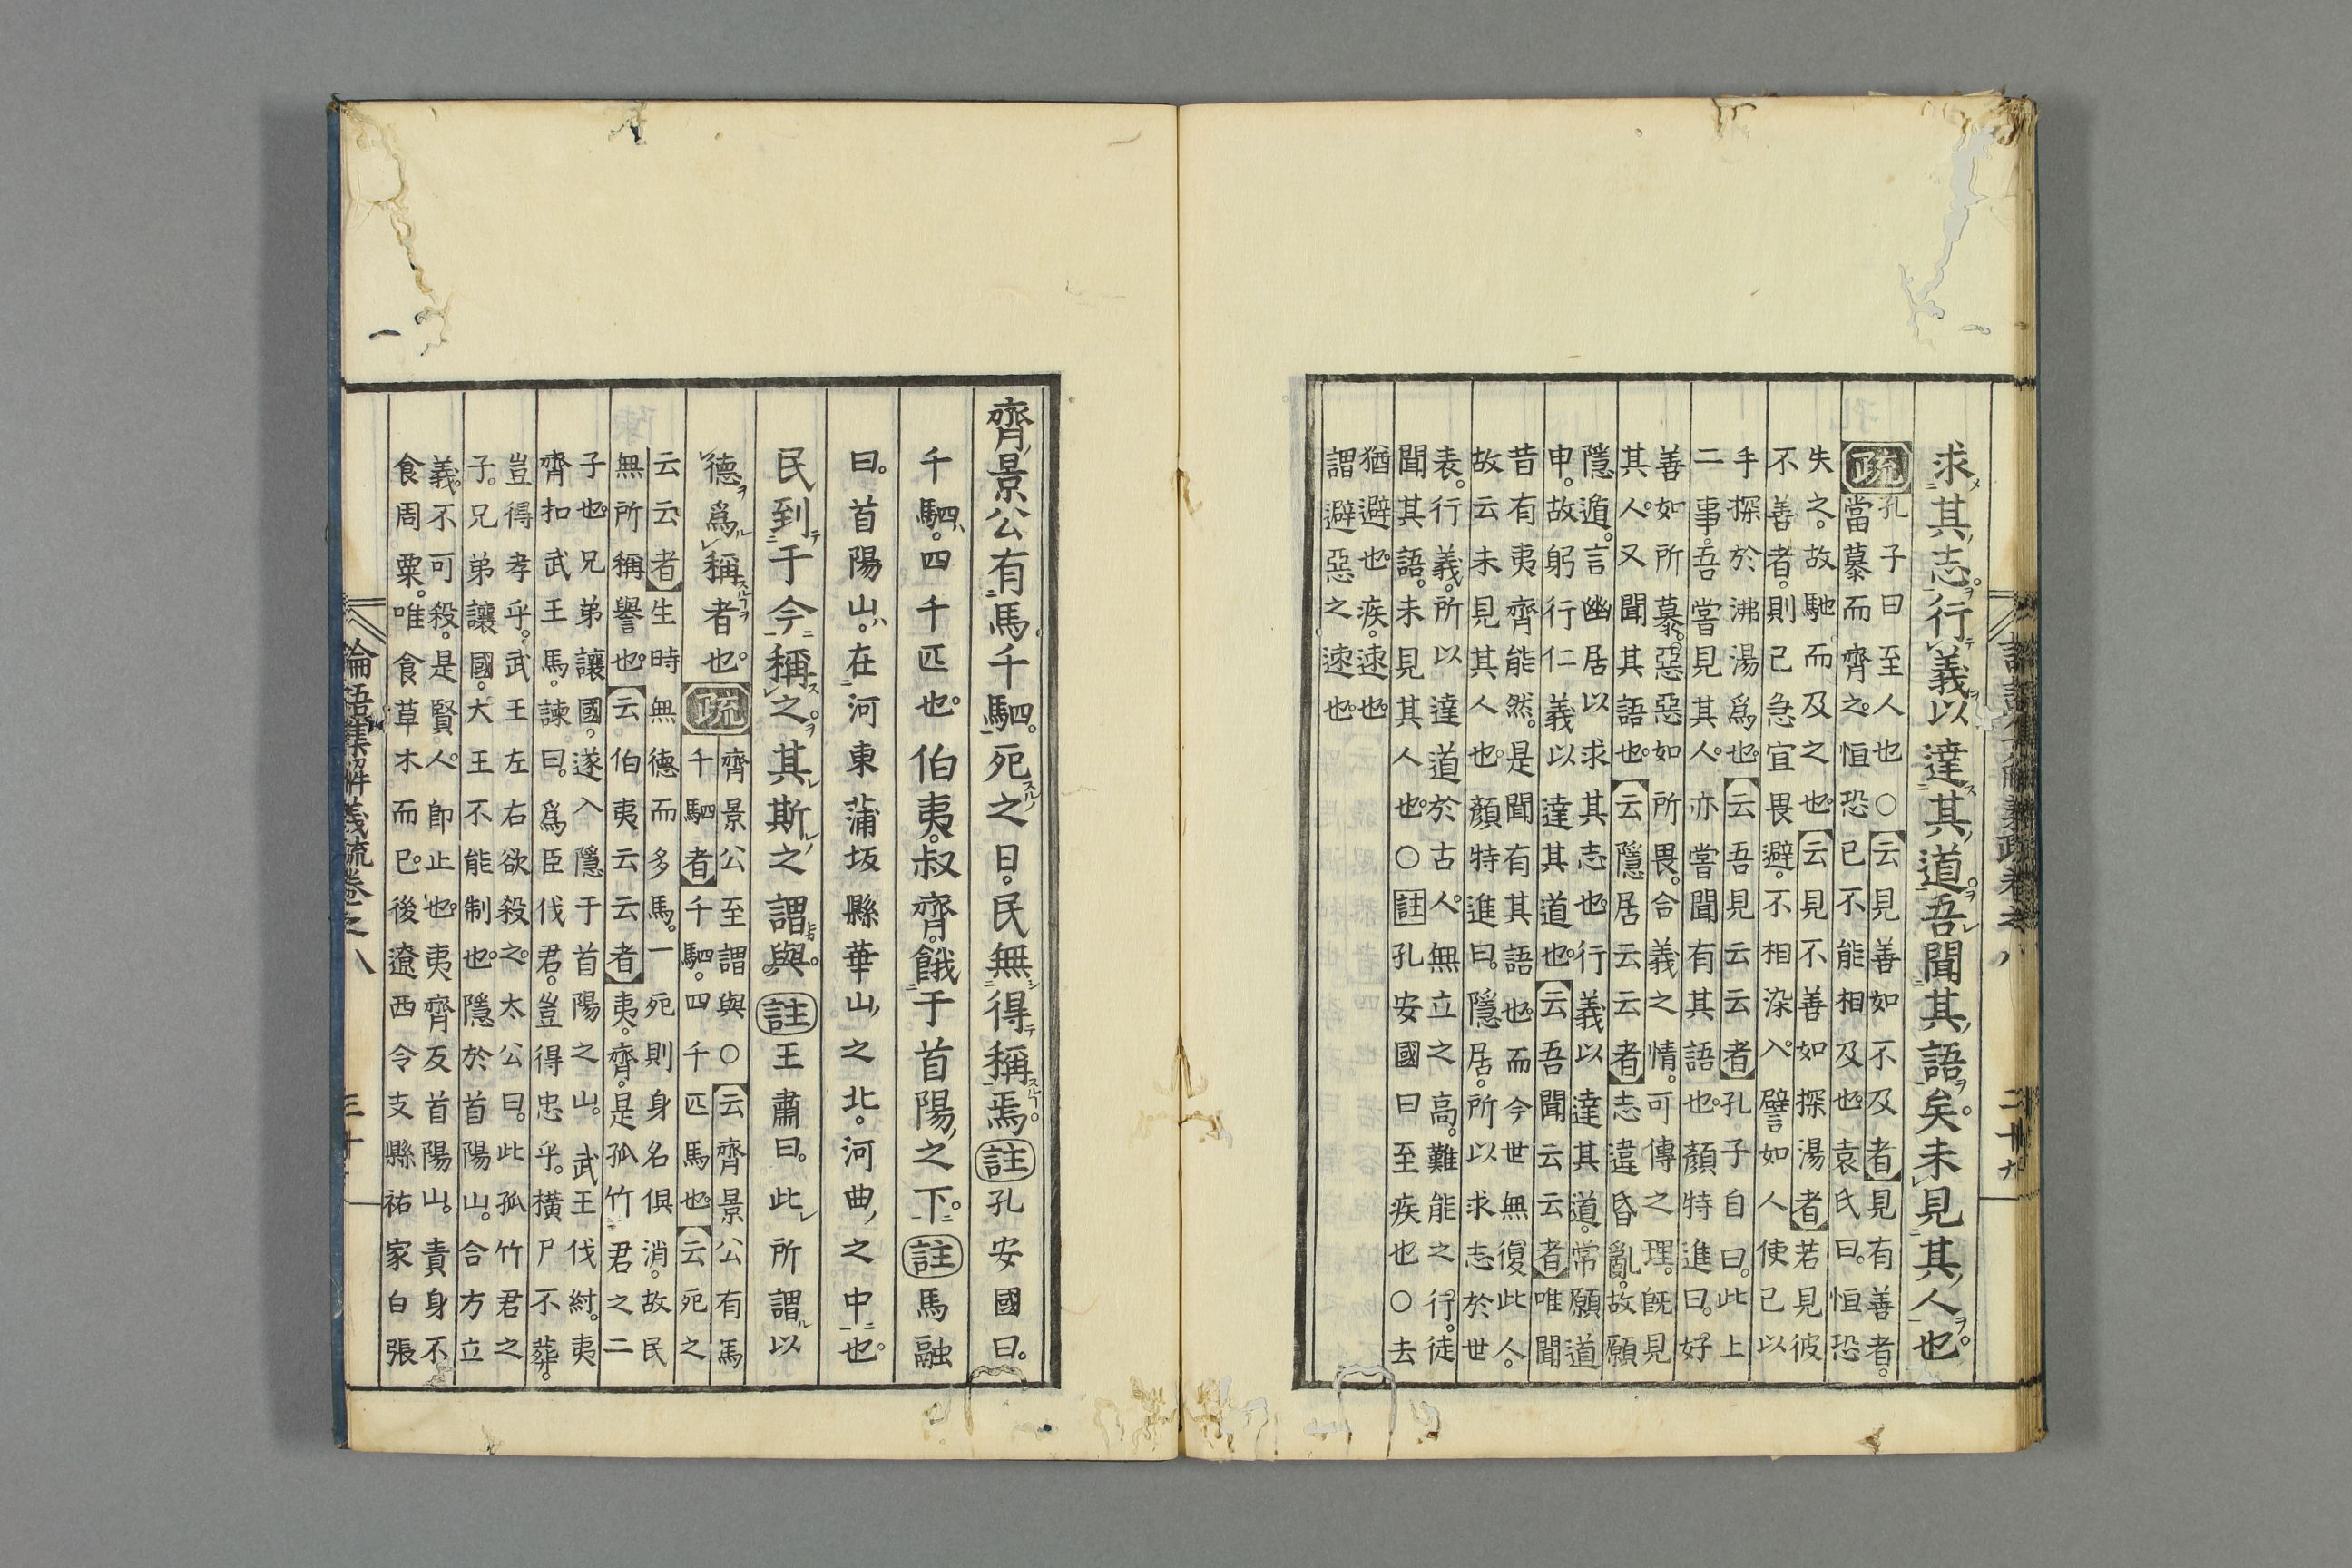 求其志。行義以達其道。吾聞其語矣。未見其人也。
疏孔子曰至人也○云見善如不及者見有善者。
當慕而齊之。恒恐已不能相及也。袁氏曰。恒恐
失之。故馳而及之也。云見不善如探湯者若見彼
不善者。則已急宜畏避。不相染入。譬如人使已以
手探於沸湯爲也。云吾見云云者孔子自曰。此上
二事。吾嘗見其人。亦嘗聞有其語也。顏特進曰。好
善如所慕。惡惡如所畏。合義之情。可傳之理。既見
其人。又聞其語也。云隱居云云者志違昏亂。故願
隱遁。言幽居以求其志也。行義以達其道。常願道
申。故躬行仁義以達其道也。云吾聞云云者唯聞
昔有夷齊能然。是聞有其語也。而今世無復此人。
故云未見其人也。顏特進曰。隱居。所以求志於世
表。行義。所以達道於古人。無立之高。難能之行。徒
聞其語。未見其人也。○註孔安國曰至疾也○去
猶避也。疾。速也。
謂避惡之速也。
齊景公有馬千駟。死之日。民無得稱焉。註孔安國曰。
千駟。四千匹也。伯夷。叔齊。餓于首陽之下。註馬融
曰。首陽山。在河東蒲坂縣華山之北。河曲之中也。
民到于今稱之。其斯之謂與。註王肅曰。此所謂以
德爲稱者也。疏齊景公至謂與○云齊景公有馬
千駟者千駟。四千匹馬也。云死之
云云者生時無德而多馬。一死則身名俱消。故民
無所稱譽也。云伯夷云云者夷。齊。是孤竹君之二
子也。兄弟讓國。遂入隱于首陽之山。武王伐紂。夷
齊扣武王馬。諫曰。爲臣伐君。豈得忠乎。橫尸不葬。
豈得孝乎。武王左右欲殺之。太公曰。此孤竹君之
子。兄弟讓國。大王不能制也。隱於首陽山。合方立
義。不可殺。是賢人。即止也。夷齊反首陽山。責身不
食周粟。唯食草木而已。後遼西令支縣祐家白張
論語集解義疏卷之八